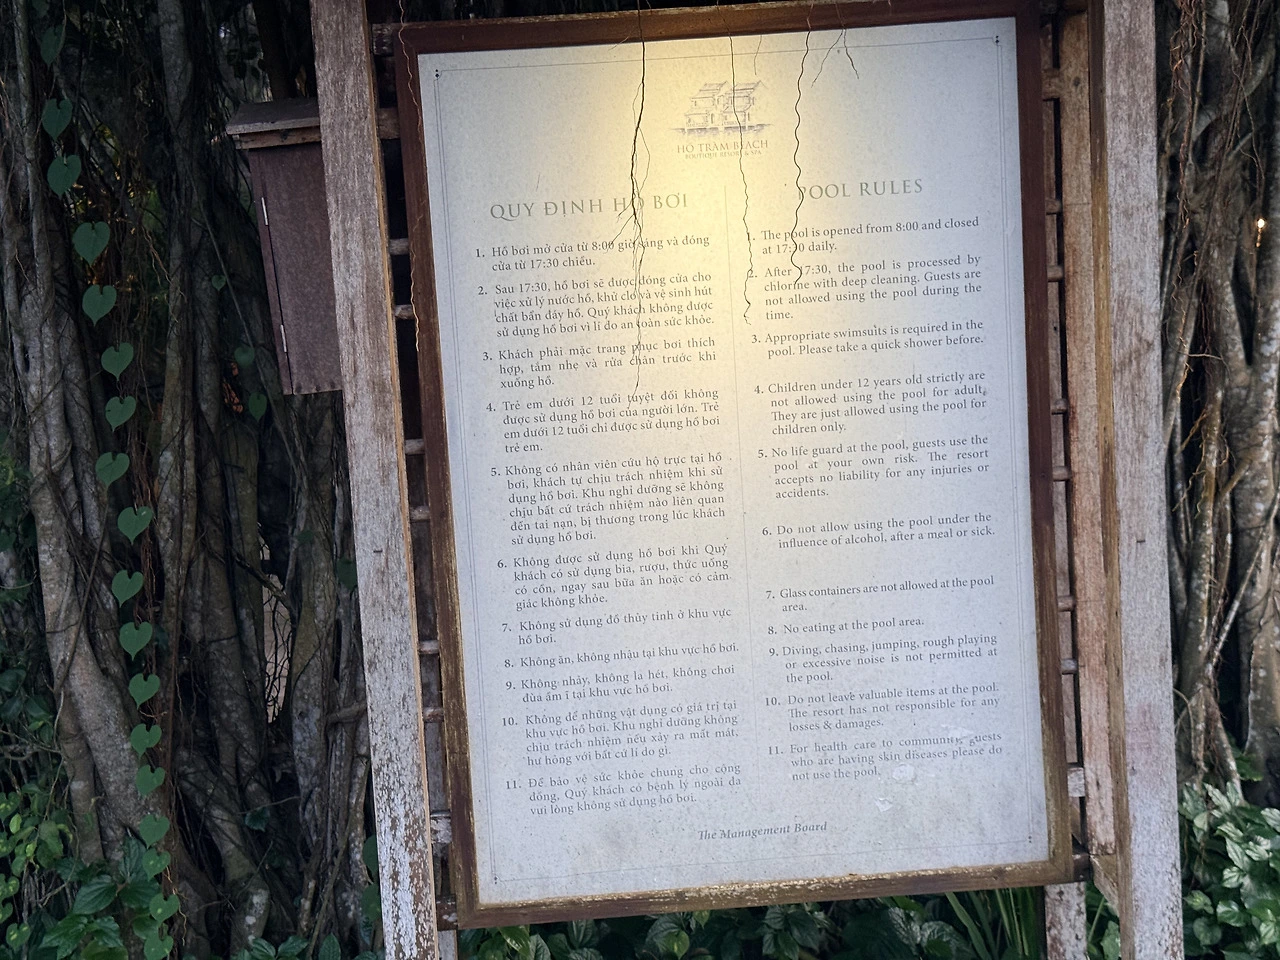 HỒ TRÀM BEACH
BOUTIQUE RESORT & SPA
QUY ĐỊNH HỒ BƠI
1. Hồ bơi mở cửa từ 8:00 giờ sáng và đóng
cửa từ 17:30 chiều.
2. Sau 17:30, hồ bơi sẽ được đóng cửa cho
việc xử lý nước hồ, khử clo và vệ sinh hút
chất bẩn đáy hồ. Quý khách không được
sử dụng hồ bơi vì lí do an toàn sức khỏe.
3. Khách phải mặc trang phục bơi thích
hợp, tắm nhẹ và rửa chân trước khi
xuống hồ.
4. Trẻ em dưới 12 tuổi tuyệt đối không
được sử dụng hồ bơi của người lớn. Trẻ
em dưới 12 tuổi chỉ được sử dụng hồ bơi
trẻ em.
5. Không có nhân viên cứu hộ trực tại hồ
bơi, khách tự chịu trách nhiệm khi sử
dụng hồ bơi. Khu nghỉ dưỡng sẽ không
chịu bất cứ trách nhiệm nào liên quan
đến tai nạn, bị thương trong lúc khách
sử dụng hồ bơi.
6. Không được sử dụng hồ bơi khi Quý
khách có sử dụng bia, rượu, thức uống
có cồn, ngay sau bữa ăn hoặc có cảm
giác không khỏe.
7. Không sử dụng đồ thủy tinh ở khu vực
hồ bơi.
8. Không ăn, không nhậu tại khu vực hồ bơi.
9. Không nhảy, không la hét, không chơi
đùa ầm ĩ tại khu vực hồ bơi.
10. Không để những vật dụng có giá trị tại
khu vực hồ bơi. Khu nghỉ dưỡng không
chịu trách nhiệm nếu xảy ra mất mát,
hư hỏng với bất cứ lí do gì.
11. Để bảo vệ sức khỏe chung cho cộng
đồng, Quý khách có bệnh lý ngoài da
vui lòng không sử dụng hồ bơi.
POOL RULES
1. The pool is opened from 8:00 and closed
at 17:30 daily.
2. After 17:30, the pool is processed by
chlorine with deep cleaning. Guests are
not allowed using the pool during the
time.
3. Appropriate swimsuits is required in the
pool. Please take a quick shower before.
4. Children under 12 years old strictly are
not allowed using the pool for adult.
They are just allowed using the pool for
children only.
5. No life guard at the pool, guests use the
pool at your own risk. The resort
accepts no liability for any injuries or
accidents.
6. Do not allow using the pool under the
influence of alcohol, after a meal or sick.
7. Glass containers are not allowed at the pool
area.
8. No eating at the pool area.
9. Diving, chasing, jumping, rough playing
or excessive noise is not permitted at
the pool.
10. Do not leave valuable items at the pool.
The resort has not responsible for any
losses & damages.
11. For health care to community, guests
who are having skin diseases please do
not use the pool.
The Management Board